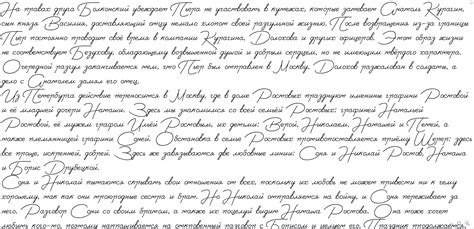 На правах друга Болконский убеждает Пьера не участвовать в кутежах, которые затевает Анатоль Курагин,
сын князя Василия, доставляющий отцу немало хлопот своей разгульной жизнью. После возвращения из-за границы
Пьер постоянно проводит свое время в компании Курагина, Долохова и других офицеров. Этот образ жизни
не соответствует Безухову, обладающему возвышенной душой и добрым сердцем, но не имеющим твёрдого характера.
Очередной разгул заканчивается тем, что Пьер был отправлен в Москву, Долохов разжалован в солдаты, а
дело с Анатолем замял его отец.
Из Петербурга действие переносится в Москву, где в доме Ростовых празднуют именины графини Ростовой
и её младшей дочери Наташи. Здесь мы знакомимся со всей семьёй Ростовых: графиней Натальей
Ростовой, её мужем графом Ильёй Ростовым, их детьми: Верой, Николаем, Наташей и Петей, а
также племянницей графини Соней. Обстановка в семье Ростовых противопоставляется приёму Шерер: здесь
все проще, искренней, добрей. Здесь же завязываются две любовные линии: Соня и Николай Ростов, Наташа
и Борис Друбецкой.
Соня и Николай пытаются скрывать свои отношения от всех, поскольку их любовь не может привести ни к чему
хорошему, так как они троюродные сестра и брат. Но Николай отправляется на войну, и Соня переживает за
него. Разговор Сони со своим братом, а также их поцелуй видит Наташа Ростова. Она тоже хочет
любить кого-то, поэтому